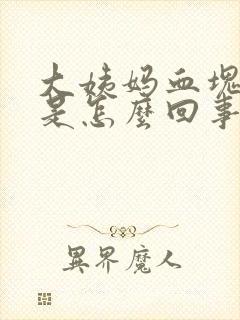 大姨妈血塊
是怎麼回事
異界魔人